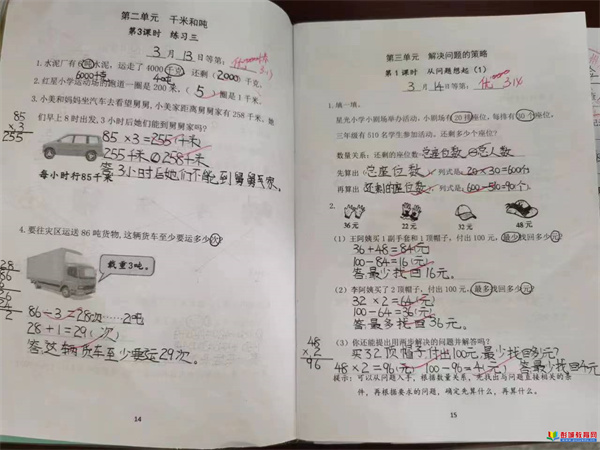 第二单元 千米和吨
第3课时 练习三
3月13日等第:
1.水泥厂有6吨水泥,运走了4000千克,还剩(2000)千克。
6000千克
2.红星小学运动场的跑道一圈是200米,(5)圈是1千米。
3.小美和妈妈坐汽车去看望舅舅,小美家距离舅舅家有258千米,她
们早上8时出发,3小时后她们能到舅舅家吗?
85
×3
255
85×3=255千米
255千米<258千米
答:3小时后她们不能到舅舅家。
每小时行85千米
4.要往灾区运送86吨货物,这辆货车至少要运多少次?
载重3吨。
86÷3=28次……2吨
28+1=29(次)
答:这辆货车至少要运29次。
14
第三单元 解决问题的策略
第1课时 从问题想起(1)
3月14日等第:优
1.填一填。
星光小学小剧场举办活动,小剧场有20排座位,每排有30个座位,
三年级有510名学生参加活动。还剩多少个座位?
数量关系:还剩的座位数=总座位数-总人数
先算出(总座位数),列式是:20×30=600(个)
再算出(还剩的座位数),列式是:600-510=90(个)
2.
36元 22元 32元 48元
(1)王阿姨买1副手套和1顶帽子,付出100元,最少找回多少元?
36+48=84(元)
100-84=16(元)
答:最少找回16元。
(2)李阿姨买了2顶帽子,付出100元,最多找回多少元?
32×2=64(元)
100-64=36(元)
答:最多找回36元。
(3)你还能提出用两步解决的问题并解答吗?
48
×2
96
买2顶帽子,付出100元,最少找回多少元?
48×2=96(元) 100-96=4(元) 答:最少找回4元
提示:可以从问题入手,根据数量关系,先找出与问题直接相关的条
件,再根据要求的问题,确定先算什么,再算什么。
15
彭城教育网